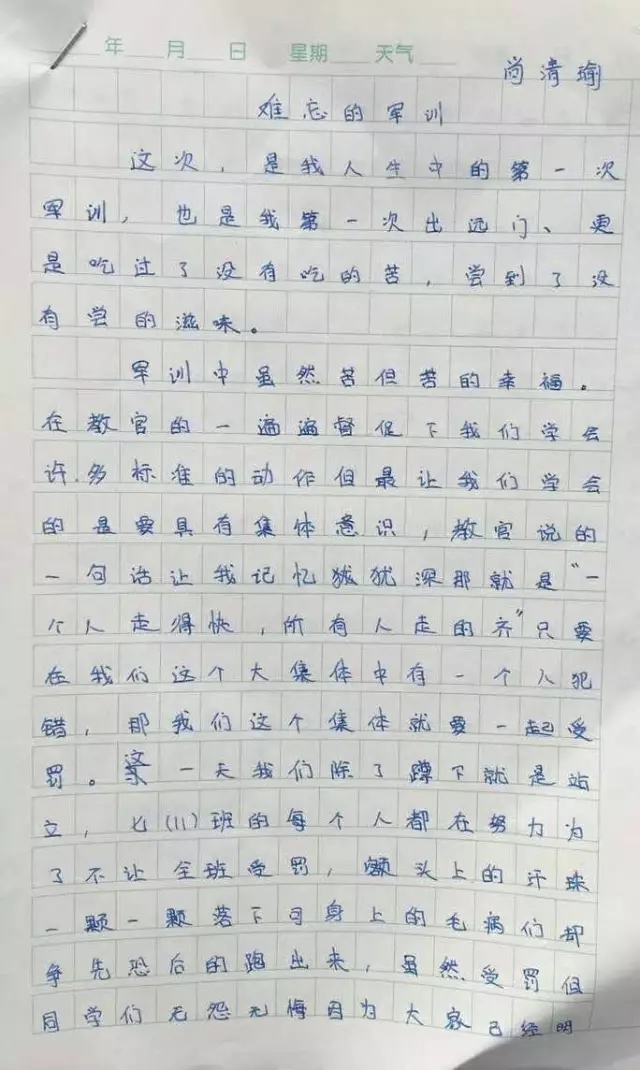 年 月 日 星期 天气
尚清瑜
难忘的军训
这次，是我人生中的第一次
军训，也是我第一次出远门、更
是吃过了没有吃的苦，尝到了没
有尝的滋味。
军训中虽然苦但苦的幸福。
在教官的一遍遍督促下我们学会
许多标准的动作但最让我们学会
的是要具有集体意识，教官说的
一句话让我记忆犹深那就是“一
个人走得快，所有人走的齐”只要
在我们这个大集体中有一个人犯
错，那我们这个集体就要一起受
罚。这一天我们除了蹲下就是站
立，七(11)班的每个人都在努力为
了不让全班受罚，额头上的汗珠
一颗一颗落下可身上的毛病们却
争先恐后的跑出来，虽然受罚但
同学们无怨无悔因为大家已经明